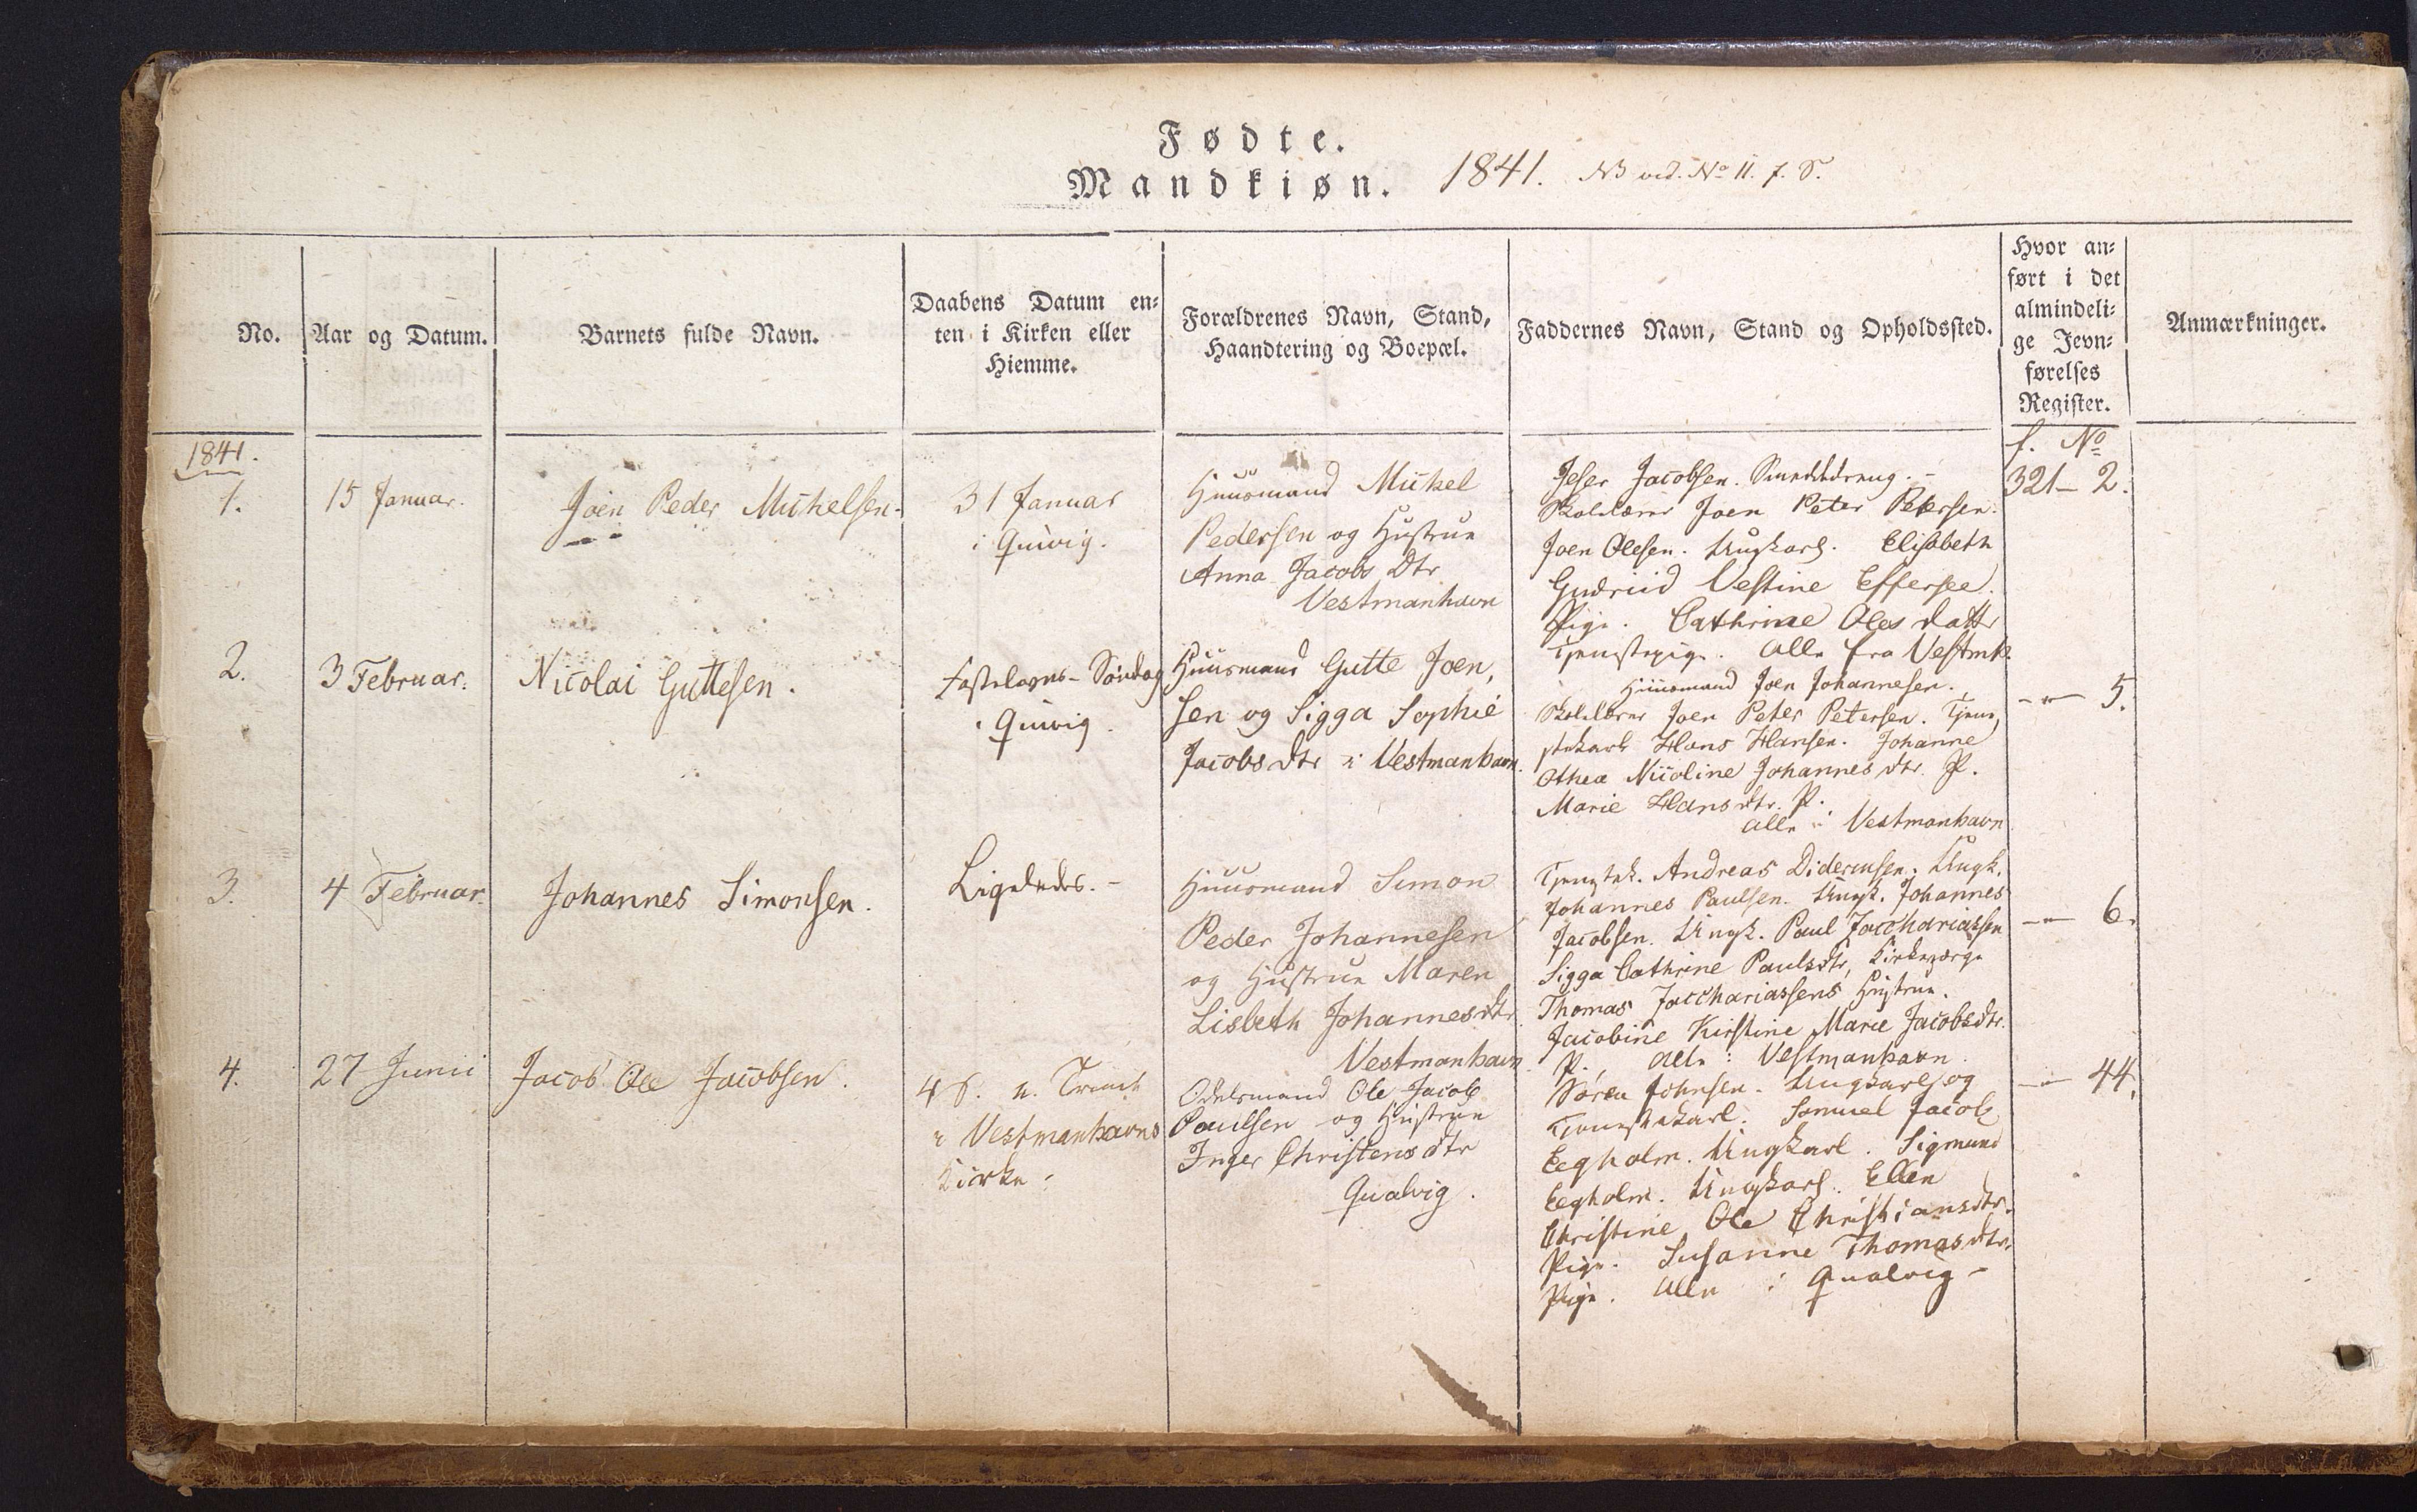 Fødte.
Mandkiøn. 1841. NB ved. No 11. f. S.
No.
Aar og Datum.
Barnets fulde Navn.
Daabens Datum en-
ten i Kirken eller
Hiemme.
Forældrenes Navn, Stand,
Haandtering og Boepæl.
Faddernes Navn, Stand og Opholdssted.
Hvor an-
ført i det
almindeli-
ge Jevn-
førelses
Register.
Anmærkninger.
1841.
1.
15 Januar.
Joen Peder Michelsen.
31 Januar
i Qvivig.
Huusmand Mickel
Pedersen og Hustrue
Anna Jacobs Dtr
Vestmanhavn
Jesper Jacobsen.
Skolelærer Joen Peter Petersen.
Joen Olesen. Ungkarl. Elisabeth
Gudriid Vestine Effersøe.
Pige. Cathrine Oles datter
Tjenestepige. Alle fra Vestmh.
f. No
321 - 2.
2.
3 Februar.
Nicolai Guttesen.
Fastelavns-Søndag
i Qvivig.
Huusmand Gutte Joen,
sen og Sigga Sophie
Jacobs dtr i Vestmanhavn.
Huusmand Joen Johannesen.
Skolelærer Joen Peter Petersen. Tjene,
stekarl Hans Hansen. Johanne
Othea Nicoline Johannes dtr. P.
Marie Hans dtr. P.
Alle i Vestmanhavn
- " - 5.
3.
4 Februar.
Johannes Simonsen.
Ligeledes. -
Huusmand Simon
Peder Johannesen
og Hustrue Maren
Lisbeth Johannesdtr.
Vestmanhavn.
Tjenestek. Andreas Diderichsen. Ungk.
Johannes Paulsen. Ungk. Johannes
Jacobsen. Ungk. Paul Zacchariassen
Sigga Cathrine Paulsdtr, Kirkeværge
Thomas Zacchariassens Hustrue.
Jacobine Kirstine Marie Jacobsdtr.
P., Alle i Vestmanhavn.
- " - 6.
4.
27 Junii
Jacob Ole Jacobsen.
4 S. e. Trinit.
i Vestmanhavns
Kirke.
Odelsmand Ole Jacob
Paulsen og Hustrue
Inger Christens dtr
Qvalvig.
Søren Johnsen. Ungkarl og
Tjenestekarl. Samuel Jacob
Eegholm. Ungkarl. Sigmund
Eegholm. Ungkarl. Ellen
Christine Ole Christiansdtr.
Pige. Susanne Thomasdtr.
Pige. Alle i Qvalvig -
- " - 44.